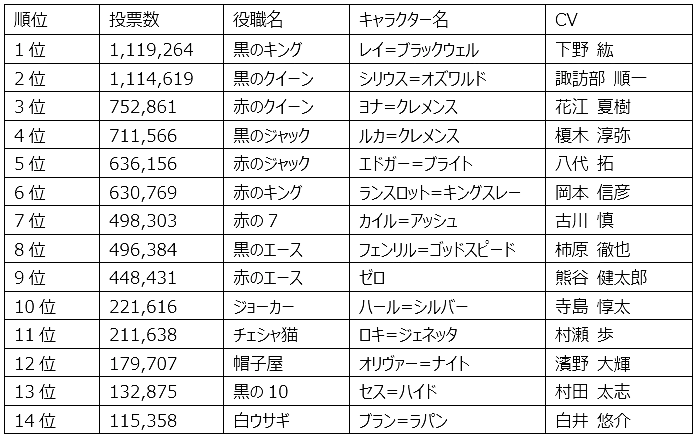 順位 投票数 役職名 キャラクター名 CV
1位 1,119,264 黒のキング レイ=ブラックウェル 下野 紘
2位 1,114,619 黒のクイーン シリウス=オズワルド 諏訪部 順一
3位 752,861 赤のクイーン ヨナ=クレメンス 花江 夏樹
4位 711,566 黒のジャック ルカ=クレメンス 榎木 淳弥
5位 636,156 赤のジャック エドガー=ブライト 八代 拓
6位 630,769 赤のキング ランスロット=キングスレー 岡本 信彦
7位 498,303 赤の7 カイル=アッシュ 古川 慎
8位 496,384 黒のエース フェンリル=ゴッドスピード 柿原 徹也
9位 448,431 赤のエース ゼロ 熊谷 健太郎
10位 221,616 ジョーカー ハール=シルバー 寺島 惇太
11位 211,638 チェシャ猫 ロキ=ジェネッタ 村瀬 歩
12位 179,707 帽子屋 オリヴァー=ナイト 濱野 大輝
13位 132,875 黒の10 セス=ハイド 村田 太志
14位 115,358 白ウサギ ブラン=ラパン 白井 悠介